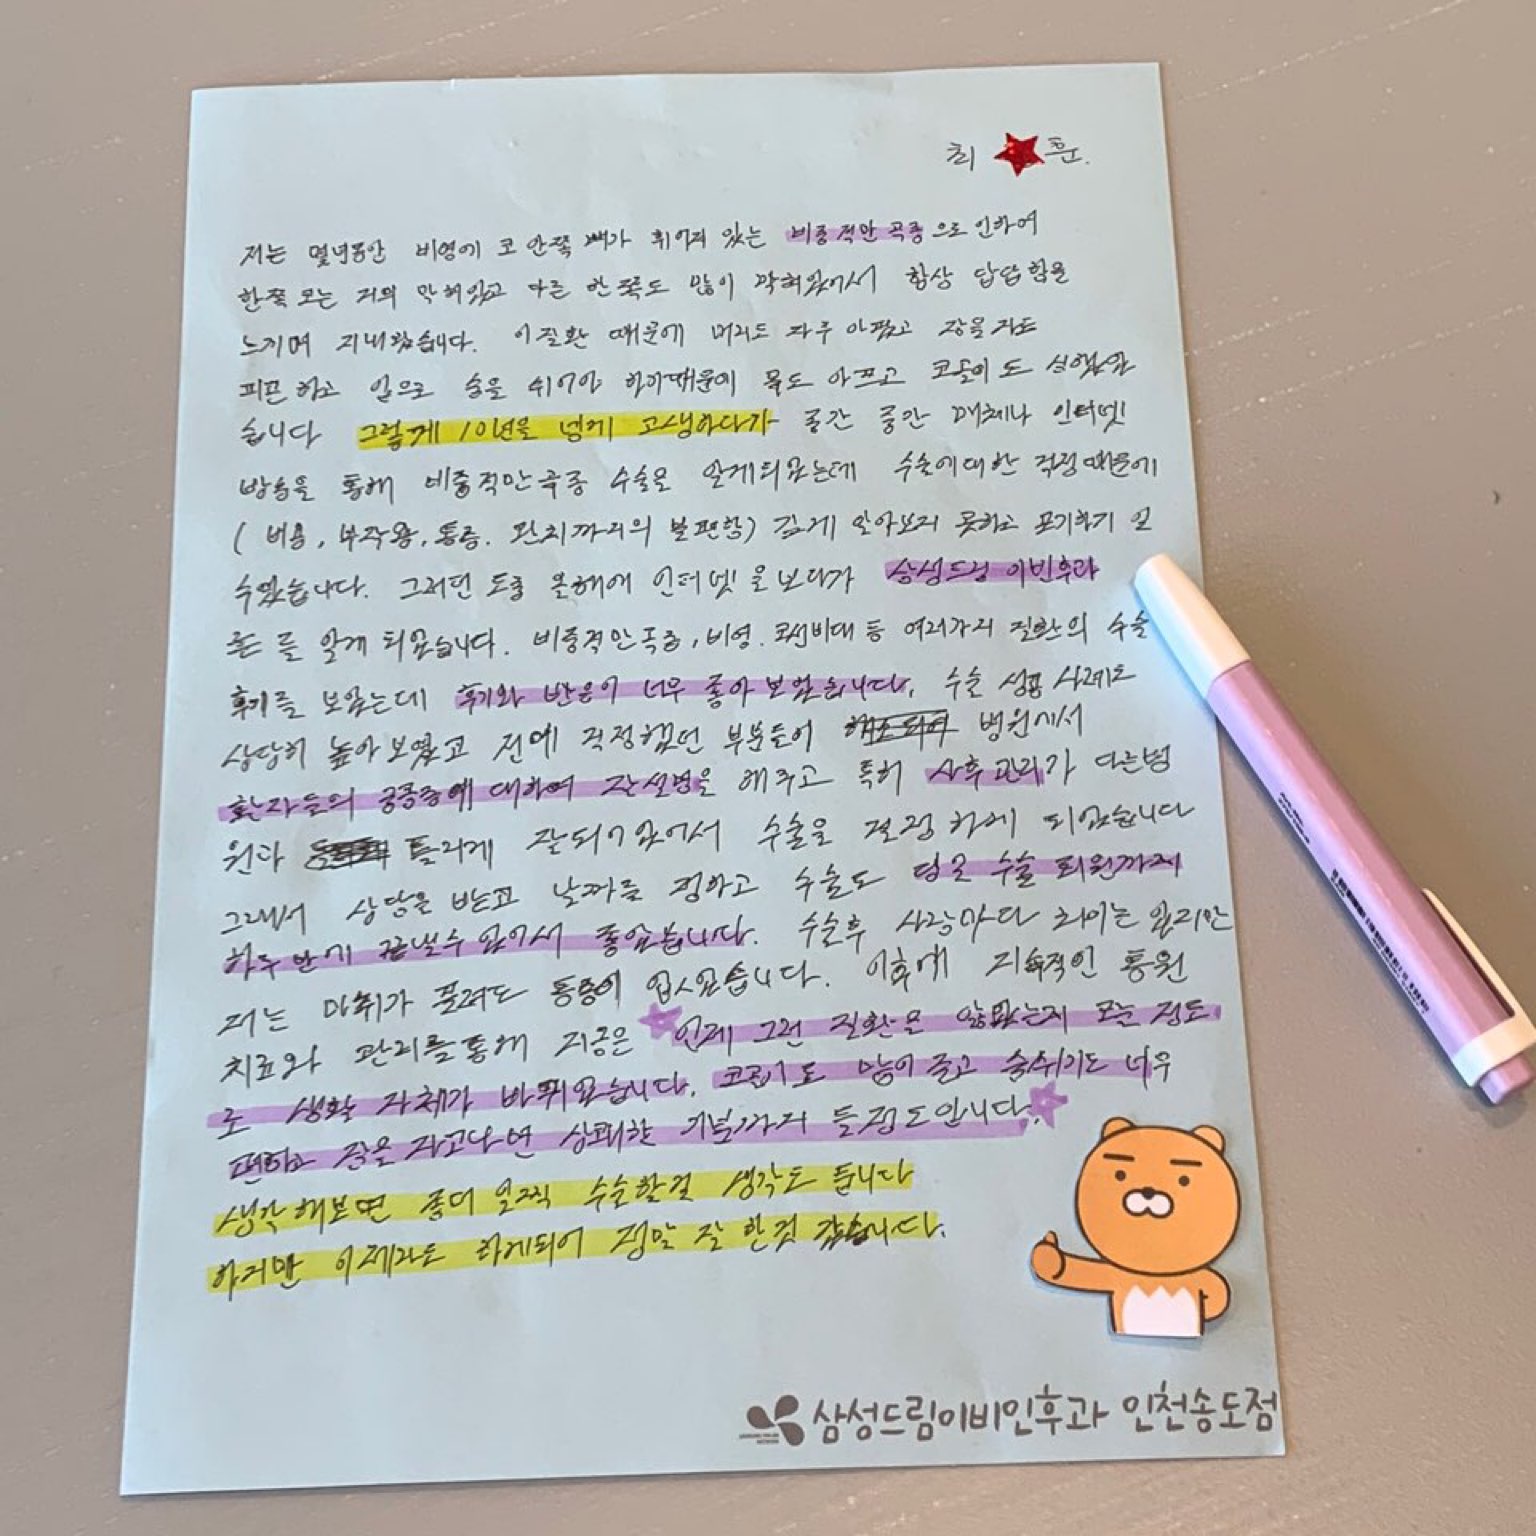 최 훈.
저는 몇년동안 비염에 코 안쪽 뼈가 휘어져 있는 비중격만곡증으로 인하여
한쪽 코는 거의 막혀있고 다른 한쪽도 많이 막혀있어서 항상 답답함을
느끼며 지내왔습니다. 이질환 때문에 머리도 자주 아팠고 잠을 자도
피곤하고 입으로 숨을 쉬어야 하기때문에 목도 아프고 코골이도 심했었
습니다 그렇게 10년을 넘게 고생하다가 중간 중간 매체나 인터넷
방송을 통해 비중격만곡증 수술을 알게되었는데 수술에대한 걱정때문에
( 비용, 부작용, 통증. 완치까지의 불편함) 깊게 알아보지 못하고 포기하기 일
수였습니다. 그러던 도중 올해에 인터넷을보다가 삼성드림 이빈후과
를 알게 되었습니다. 비중격만곡증, 비염. 코선비대 등 여러가지 질환의 수술
후기를 보았는데 후기와 반응이 너무 좋아 보였습니다. 수술 성공 사례도
상당히 높아보였고 전에 걱정했던 부분들이 병원에서
환자들의 궁금증에 대하여 잘설명을 해주고 특히 사후관리가 다른병
원과 틀리게 잘되어있어서 수술을 결정하게 되었습니다
그래서 상담을 받고 날짜를 정하고 수술도 당일 수술 퇴원까지
하루만에 끝낼수있어서 좋았습니다. 수술후 사람마다 차이는 있지만
저는 마취가 풀려도 통증이 없었습니다. 이후에 지속적인 통원
치료와 관리를통해 지금은 언제 그런 질환을 앓았는지 모를 정도
로 생활 자체가 바뀌었습니다. 코골이도 많이 줄고 숨쉬기도 너무
편하고 잠을 자고나면 상쾌한 기분까지 들정도입니다.
생각해보면 좀더 일찍 수술할걸 생각도 듭니다
하지만 이제라도 하게되어 정말 잘 한것 같습니다.
삼성드림이비인후과 인천송도점